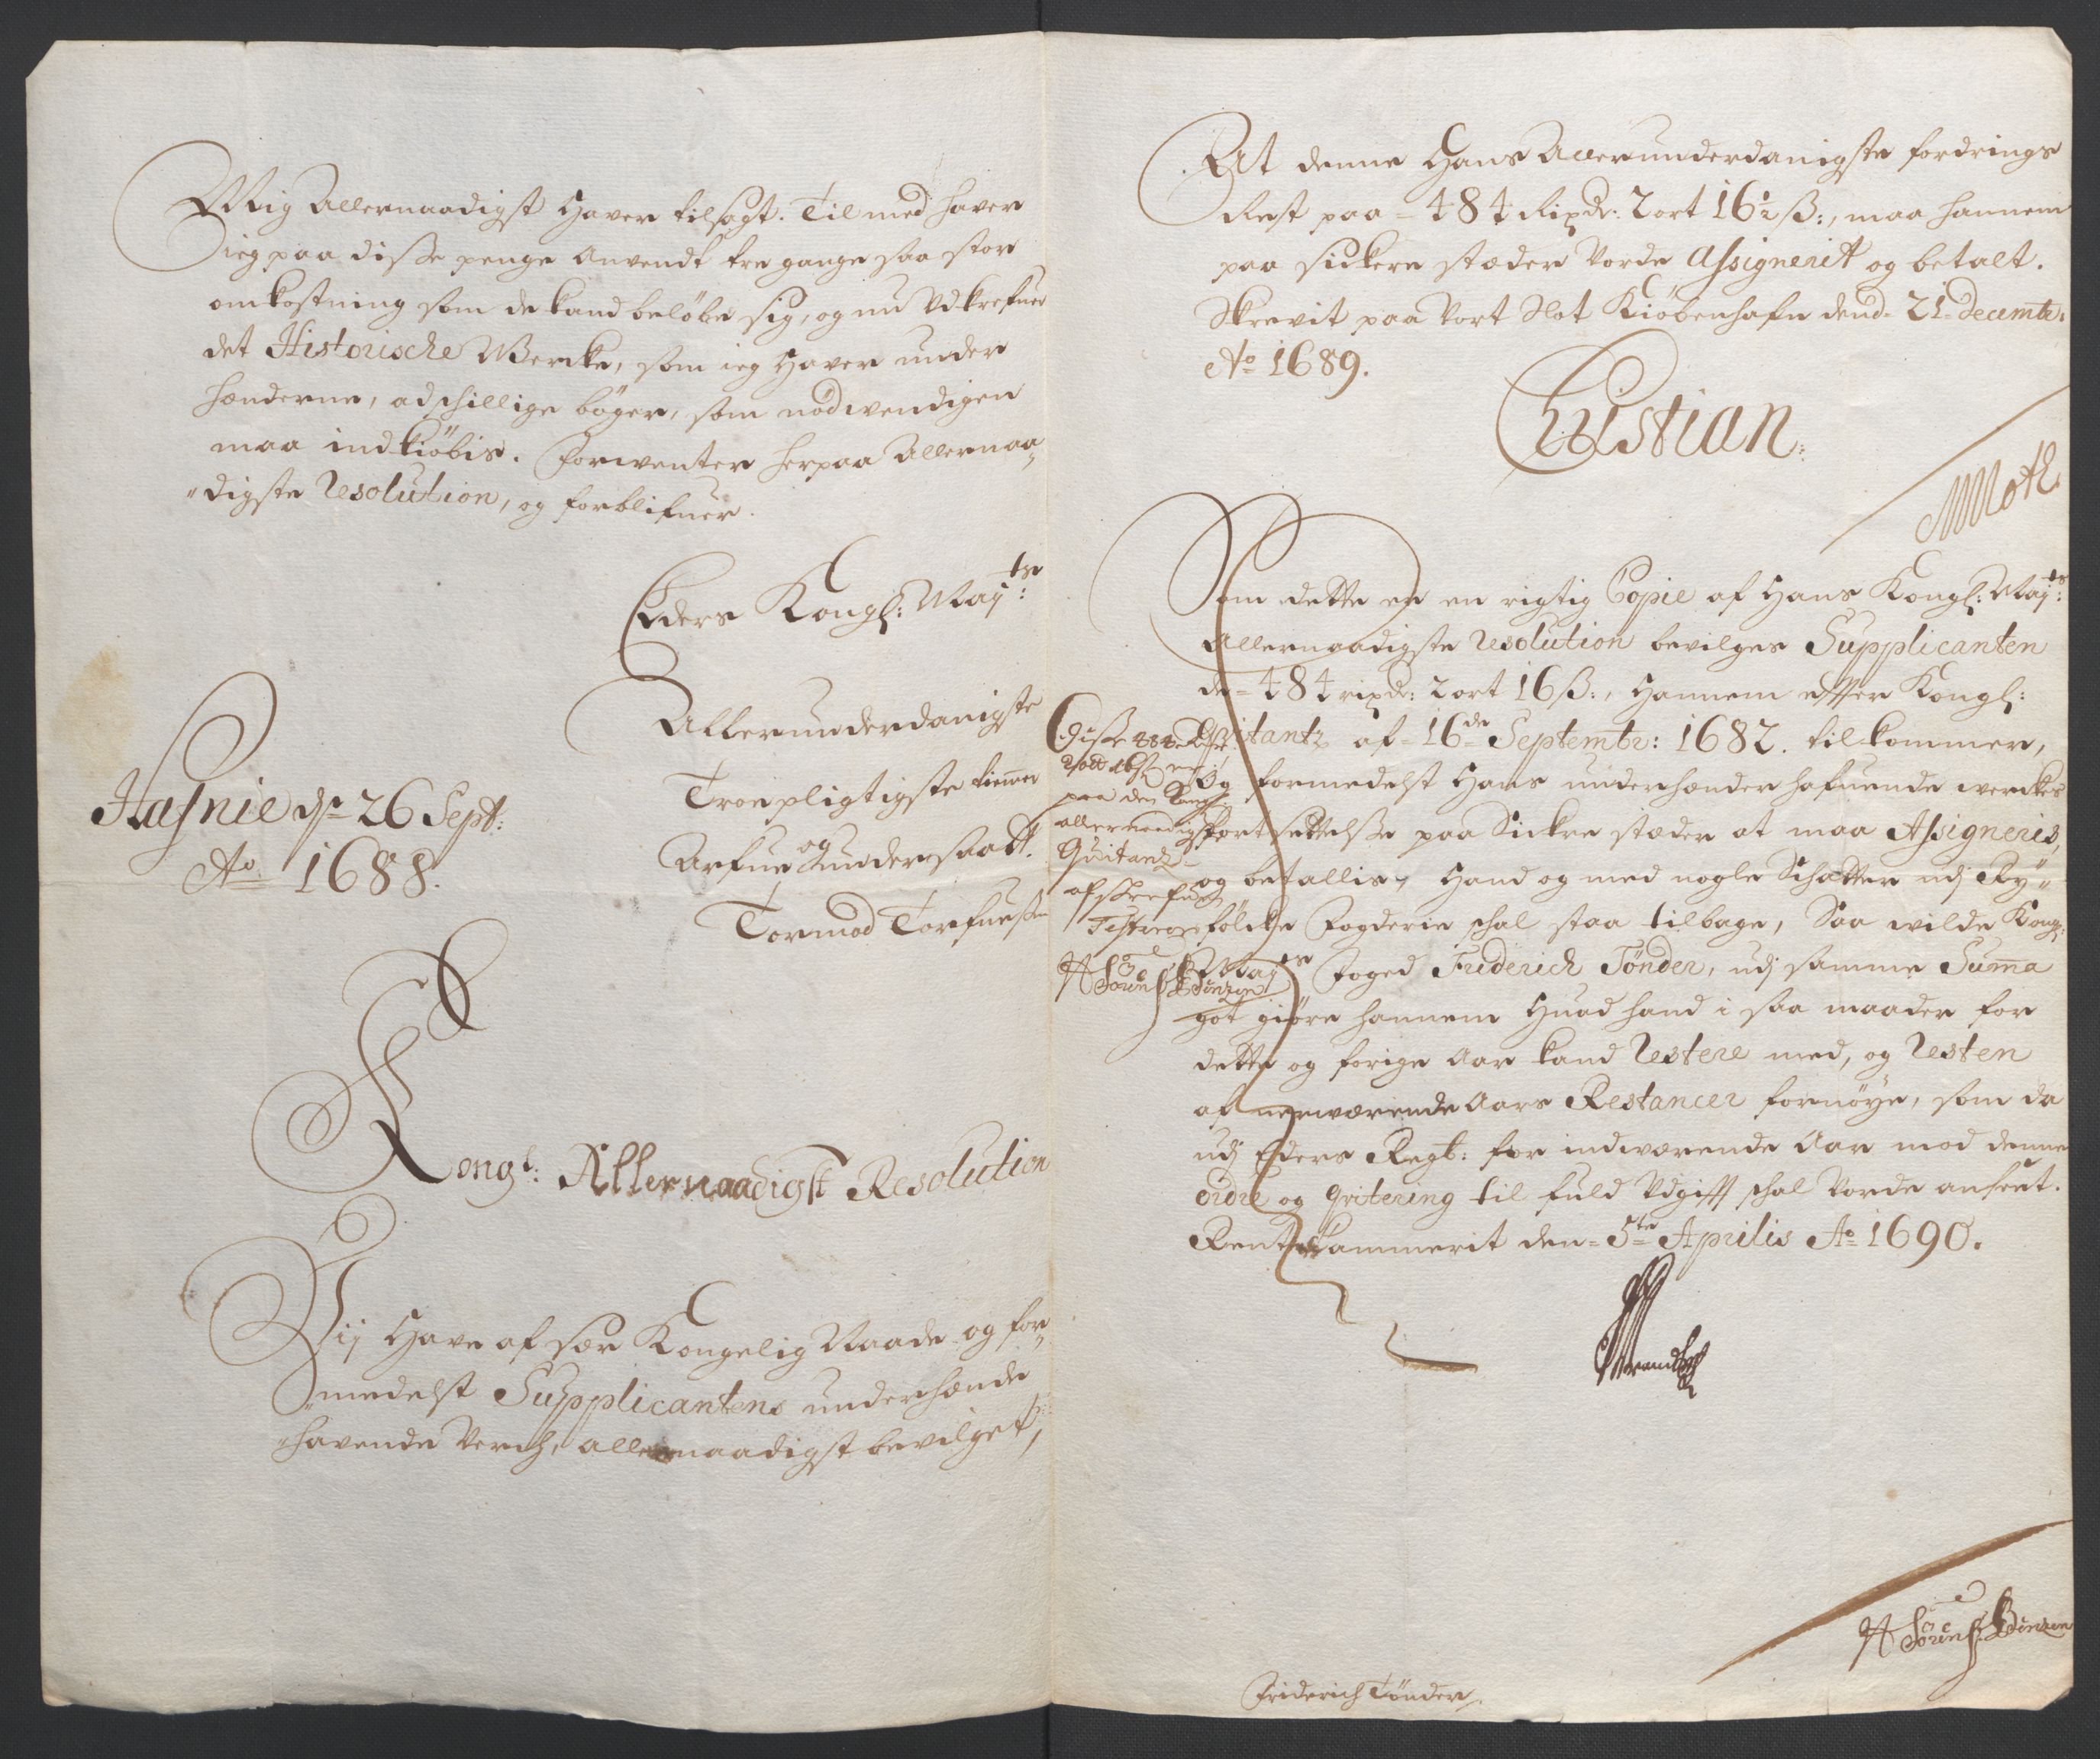 Mig Allernaadigst hafver tilsagt. Til med hafver
ieg paa disse penge anvendt tre gange saa stor
omkostning som de kand beløbe sig, og nu Udkrefuer
det Historische Wercke, som ieg hafver under
hænderne, adschillige bøger, som nødwendigen
maa indkiøbis. Forwenter herpaa Allernaa-
digste Resolution, og forblifuer.
Eders Kongl: May:ts
Allerunderdanigste
Troepligtigste tienner
Arfue og undersaatt.
Tormod Torfuesen
Hafnie d. 26 Sept:
Ao 1688.
Kongl: Allernaadigst Resolution
Vij Have af sær Kongelig Naade og for-
medelst Supplicantens underhænde
havende Verch, allernaadigst bevilget,
At denne Hans Allerunderdanigste fordrings
Rest paa 484 Rixdr: 2 ort 16½ ß:, maa hannem
paa sickere stæder Vorde Assignerit og betalt.
Skrevit paa Vort Slot Kiøbenhafn dend 21 Decembr:
Ao 1689.
Christian.
MMoth.
Som dette er en rigtig Copie af Hans Kongl: May:ts
Allernaadigste Resolution bevilges Supplicanten
de 484 rixdr: 2 ort 16 ß:, Hannem effter Kongl:
Qvitantz af 16de Septembr: 1682. tilkommer,
Og formedelst Hans underhænder hafuende werckes
fortsettelse paa Sickre stæder at maa Assigneris,
og betallis, Hand og med nogle Schatter udj Ry-
fölcke Fogderie schal staa tilbage, Saa wilde Kongl:
May:ts Foged Friderich Tönder, udj samme Suma
got giøre hannem Huad hand i saa maader for
dette og forige Aar kand Restere med, og Resten
af nerwærende Aars Restancer fornøye, som da
udj Eders Regt: for indwærende Aar mod denne
ordre og Qvitering til fuld Udgifft schal Vorde anseet.
Rentekammerit den 5te Aprilis Ao 1690.
Brandt
Disse 484 rdr
2 ort 16 ß er
paa den Kongl
allernaadigste
Quitantz
afskrefuen
Testerer
H Sörensen
H Sörensen
Friderich Tönder